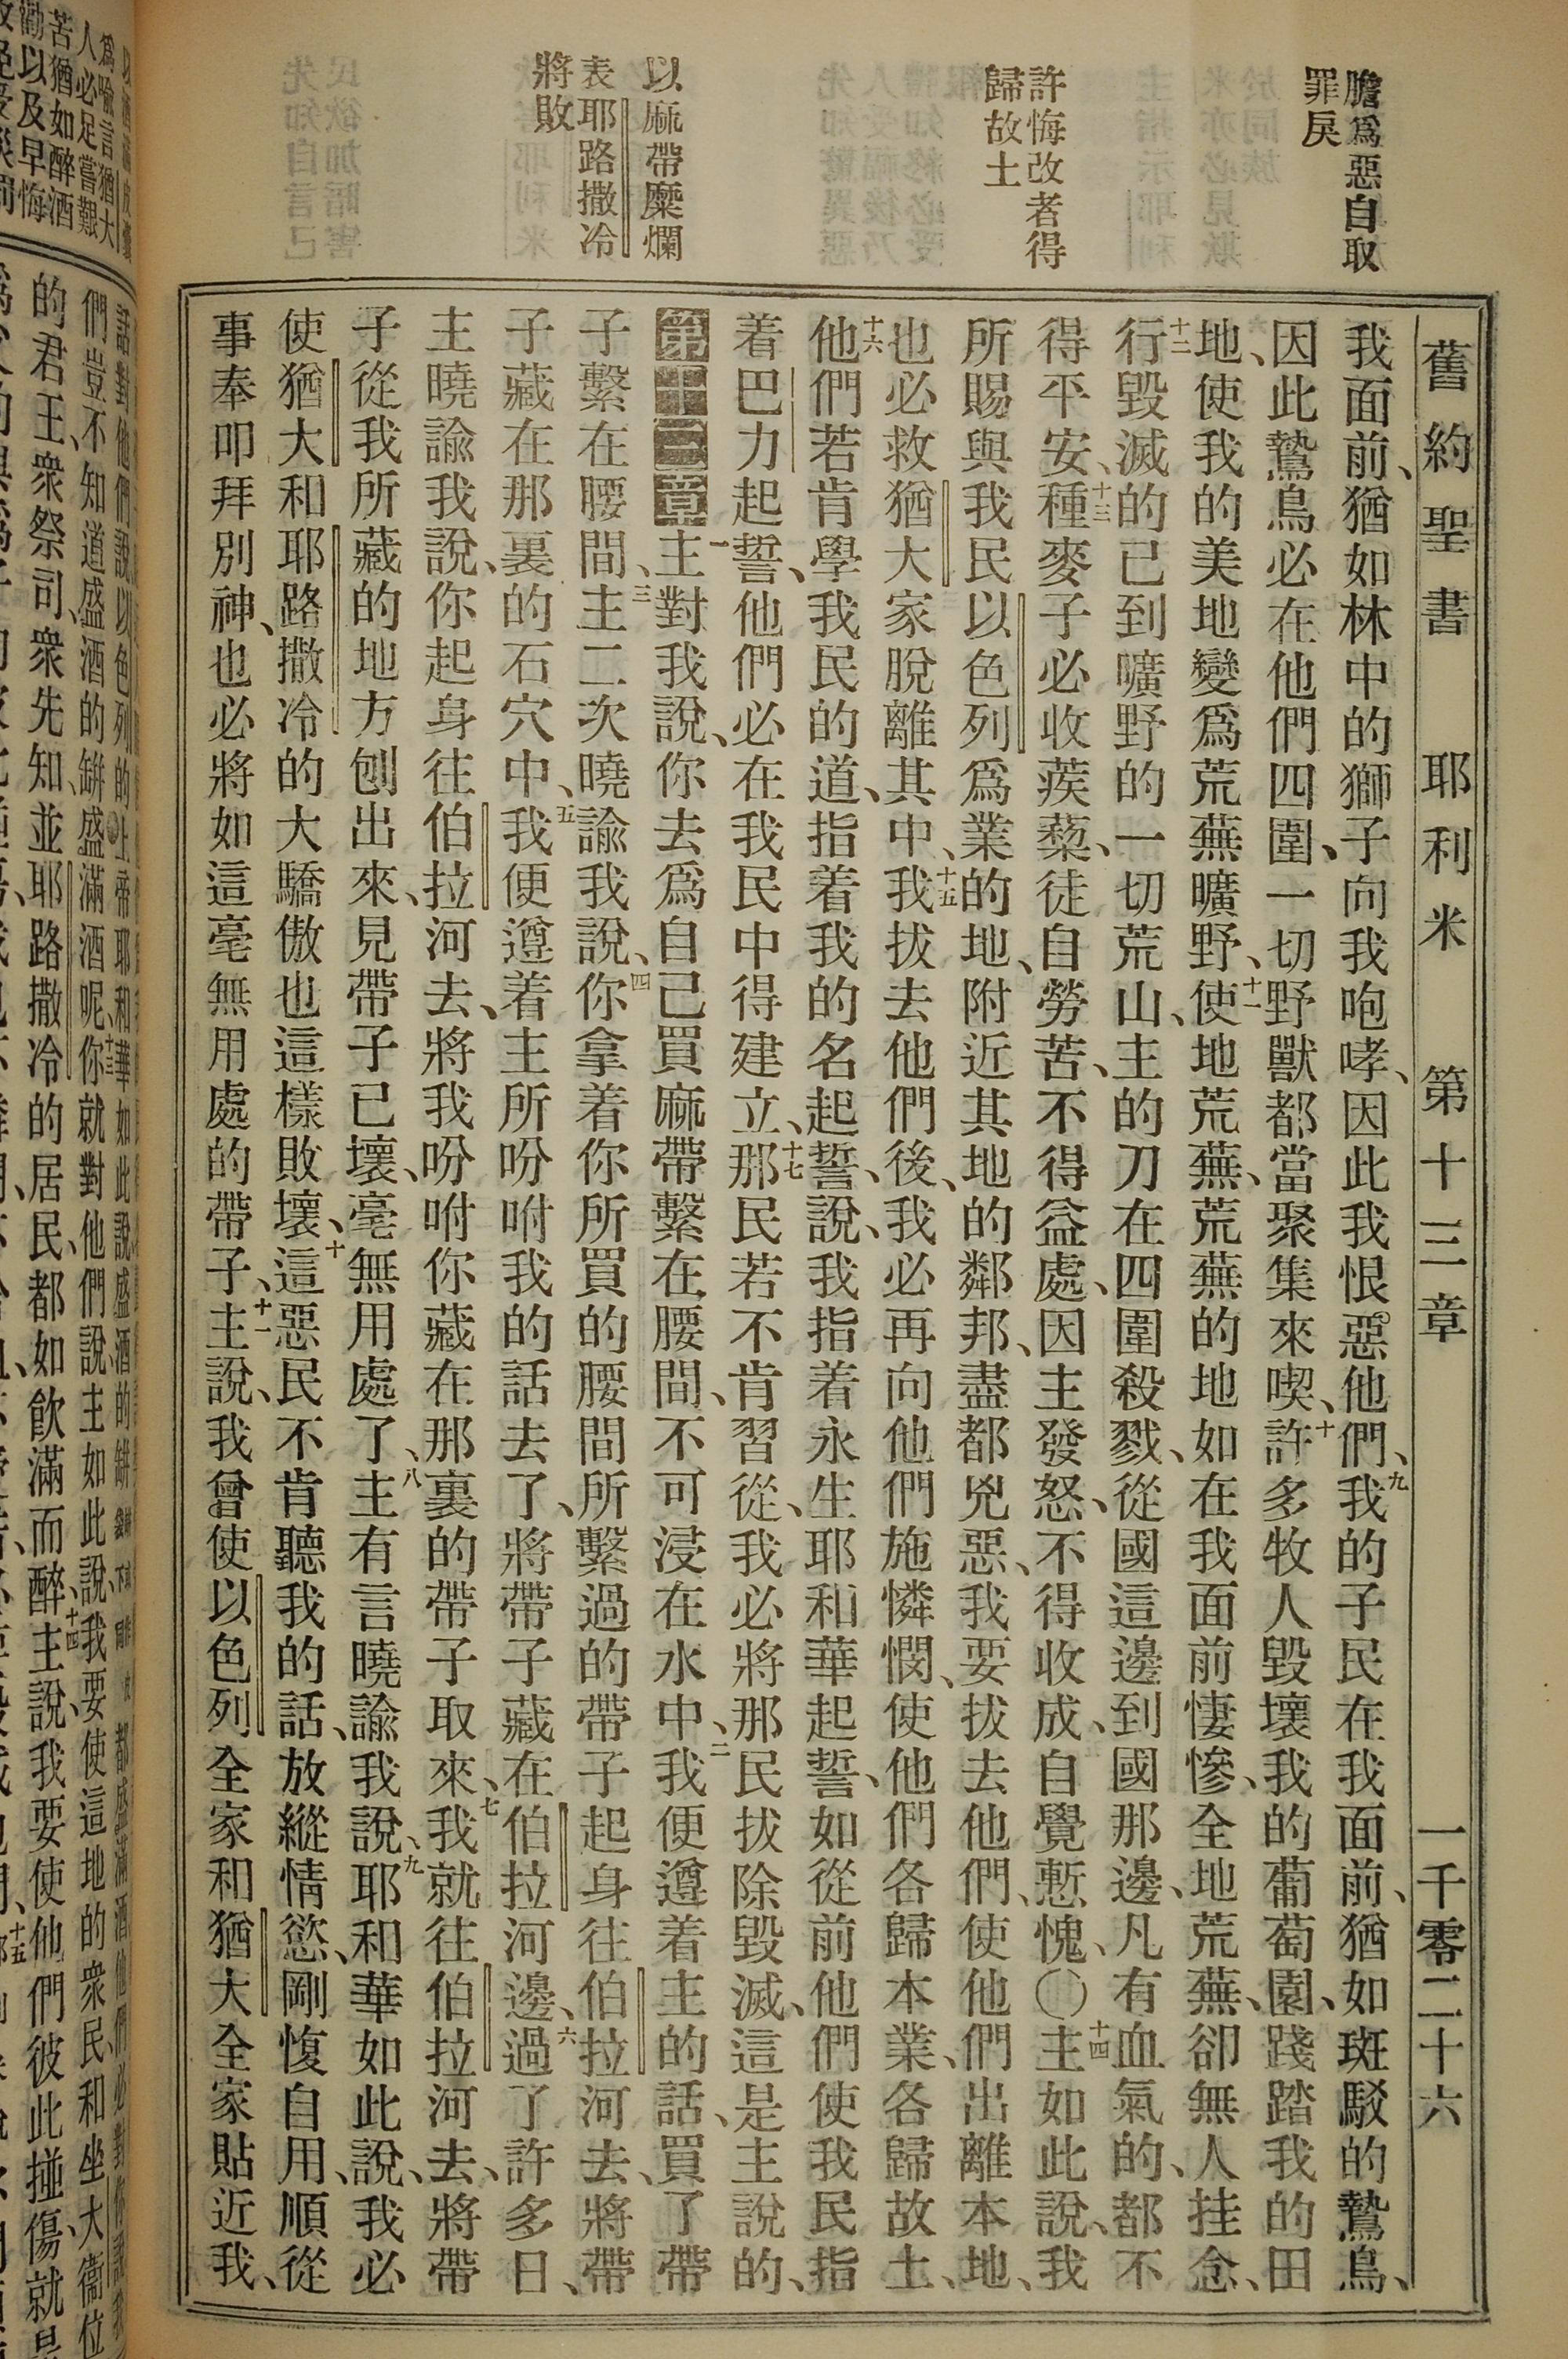 舊約聖書 耶利米 第十三章 一千零二十六
膽爲惡自取
罪戾
許悔改者得
歸故土
以麻帶糜爛
表耶路撒冷
將敗
我面前、猶如林中的獅子向我咆哮、因此我恨惡他們、九我的子民在我面前、猶如斑駁的鷙鳥、
因此鷙鳥必在他們四圍、一切野獸都當聚集來喫、十許多牧人毀壞我的葡萄園、踐踏我的田
地、使我的美地變爲荒蕪曠野、十一使地荒蕪、荒蕪的地如在我面前悽慘、全地荒蕪、卻無人挂念、
十二行毀滅的已到曠野的一切荒山、主的刀在四圍殺戮、從國這邊到國那邊、凡有血氣的、都不
得平安、十三種麥子必收蒺藜、徒自勞苦、不得益處、因主發怒、不得收成、自覺慙愧、〇十四主如此說、我
所賜與我民以色列爲業的地、附近其地的鄰邦、盡都兇惡、我要拔去他們、使他們出離本地、
也必救猶大家脫離其中、十五我拔去他們後、我必再向他們施憐憫、使他們各歸本業、各歸故土、
十六他們若肯學我民的道、指着我的名起誓、說、我指着永生耶和華起誓、如從前他們使我民指
着巴力起誓、他們必在我民中得建立、十七那民若不肯習從、我必將那民拔除毀滅、這是主說的、
第十三章 一主對我說、你去爲自己買麻帶繫在腰間、不可浸在水中、二我便遵着主的話、買了帶
子繫在腰間、三主二次曉諭我說、四你拿着你所買的腰間所繫過的帶子起身往伯拉河去、將帶
子藏在那裏的石穴中、五我便遵着主所吩咐我的話去了、將帶子藏在伯拉河邊、六過了許多日、
主曉諭我說、你起身往伯拉河去、將我吩咐你藏在那裏的帶子取來、七我就往伯拉河去、將帶
子從我所藏的地方刨出來、見帶子已壞、毫無用處了、八主有言曉諭我說、九耶和華如此說、我必
使猶大和耶路撒冷的大驕傲也這樣敗壞、十這惡民不肯聽我的話、放縱情慾、剛愎自用、順從
事奉叩拜別神、也必將如這毫無用處的帶子、十一主說、我曾使以色列全家和猶大全家貼近我、
爲喻言猶大
人必足嘗艱
苦猶如醉酒
勸以及早悔
話對他們說以色列的上帝耶和華如此說盛酒的
們豈不知道盛酒的缾盛滿酒呢、十三你就對他們說、主如此說、我要使這地的衆民、和坐大衞位
的君王、衆祭司、衆先知、並耶路撒冷的居民、都如飲滿而醉、十四主說、我要使他們彼此撞傷、就是